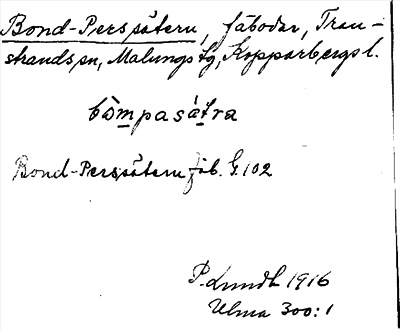 Bond-Perssätern, fäbodar, Tran-
strands sn, Malungs tg, Kopparbergs l.
bòmpasá̀tra
Bond-Perssätern fäb. G. 102
P. Lundh 1916
Ulma 300:1